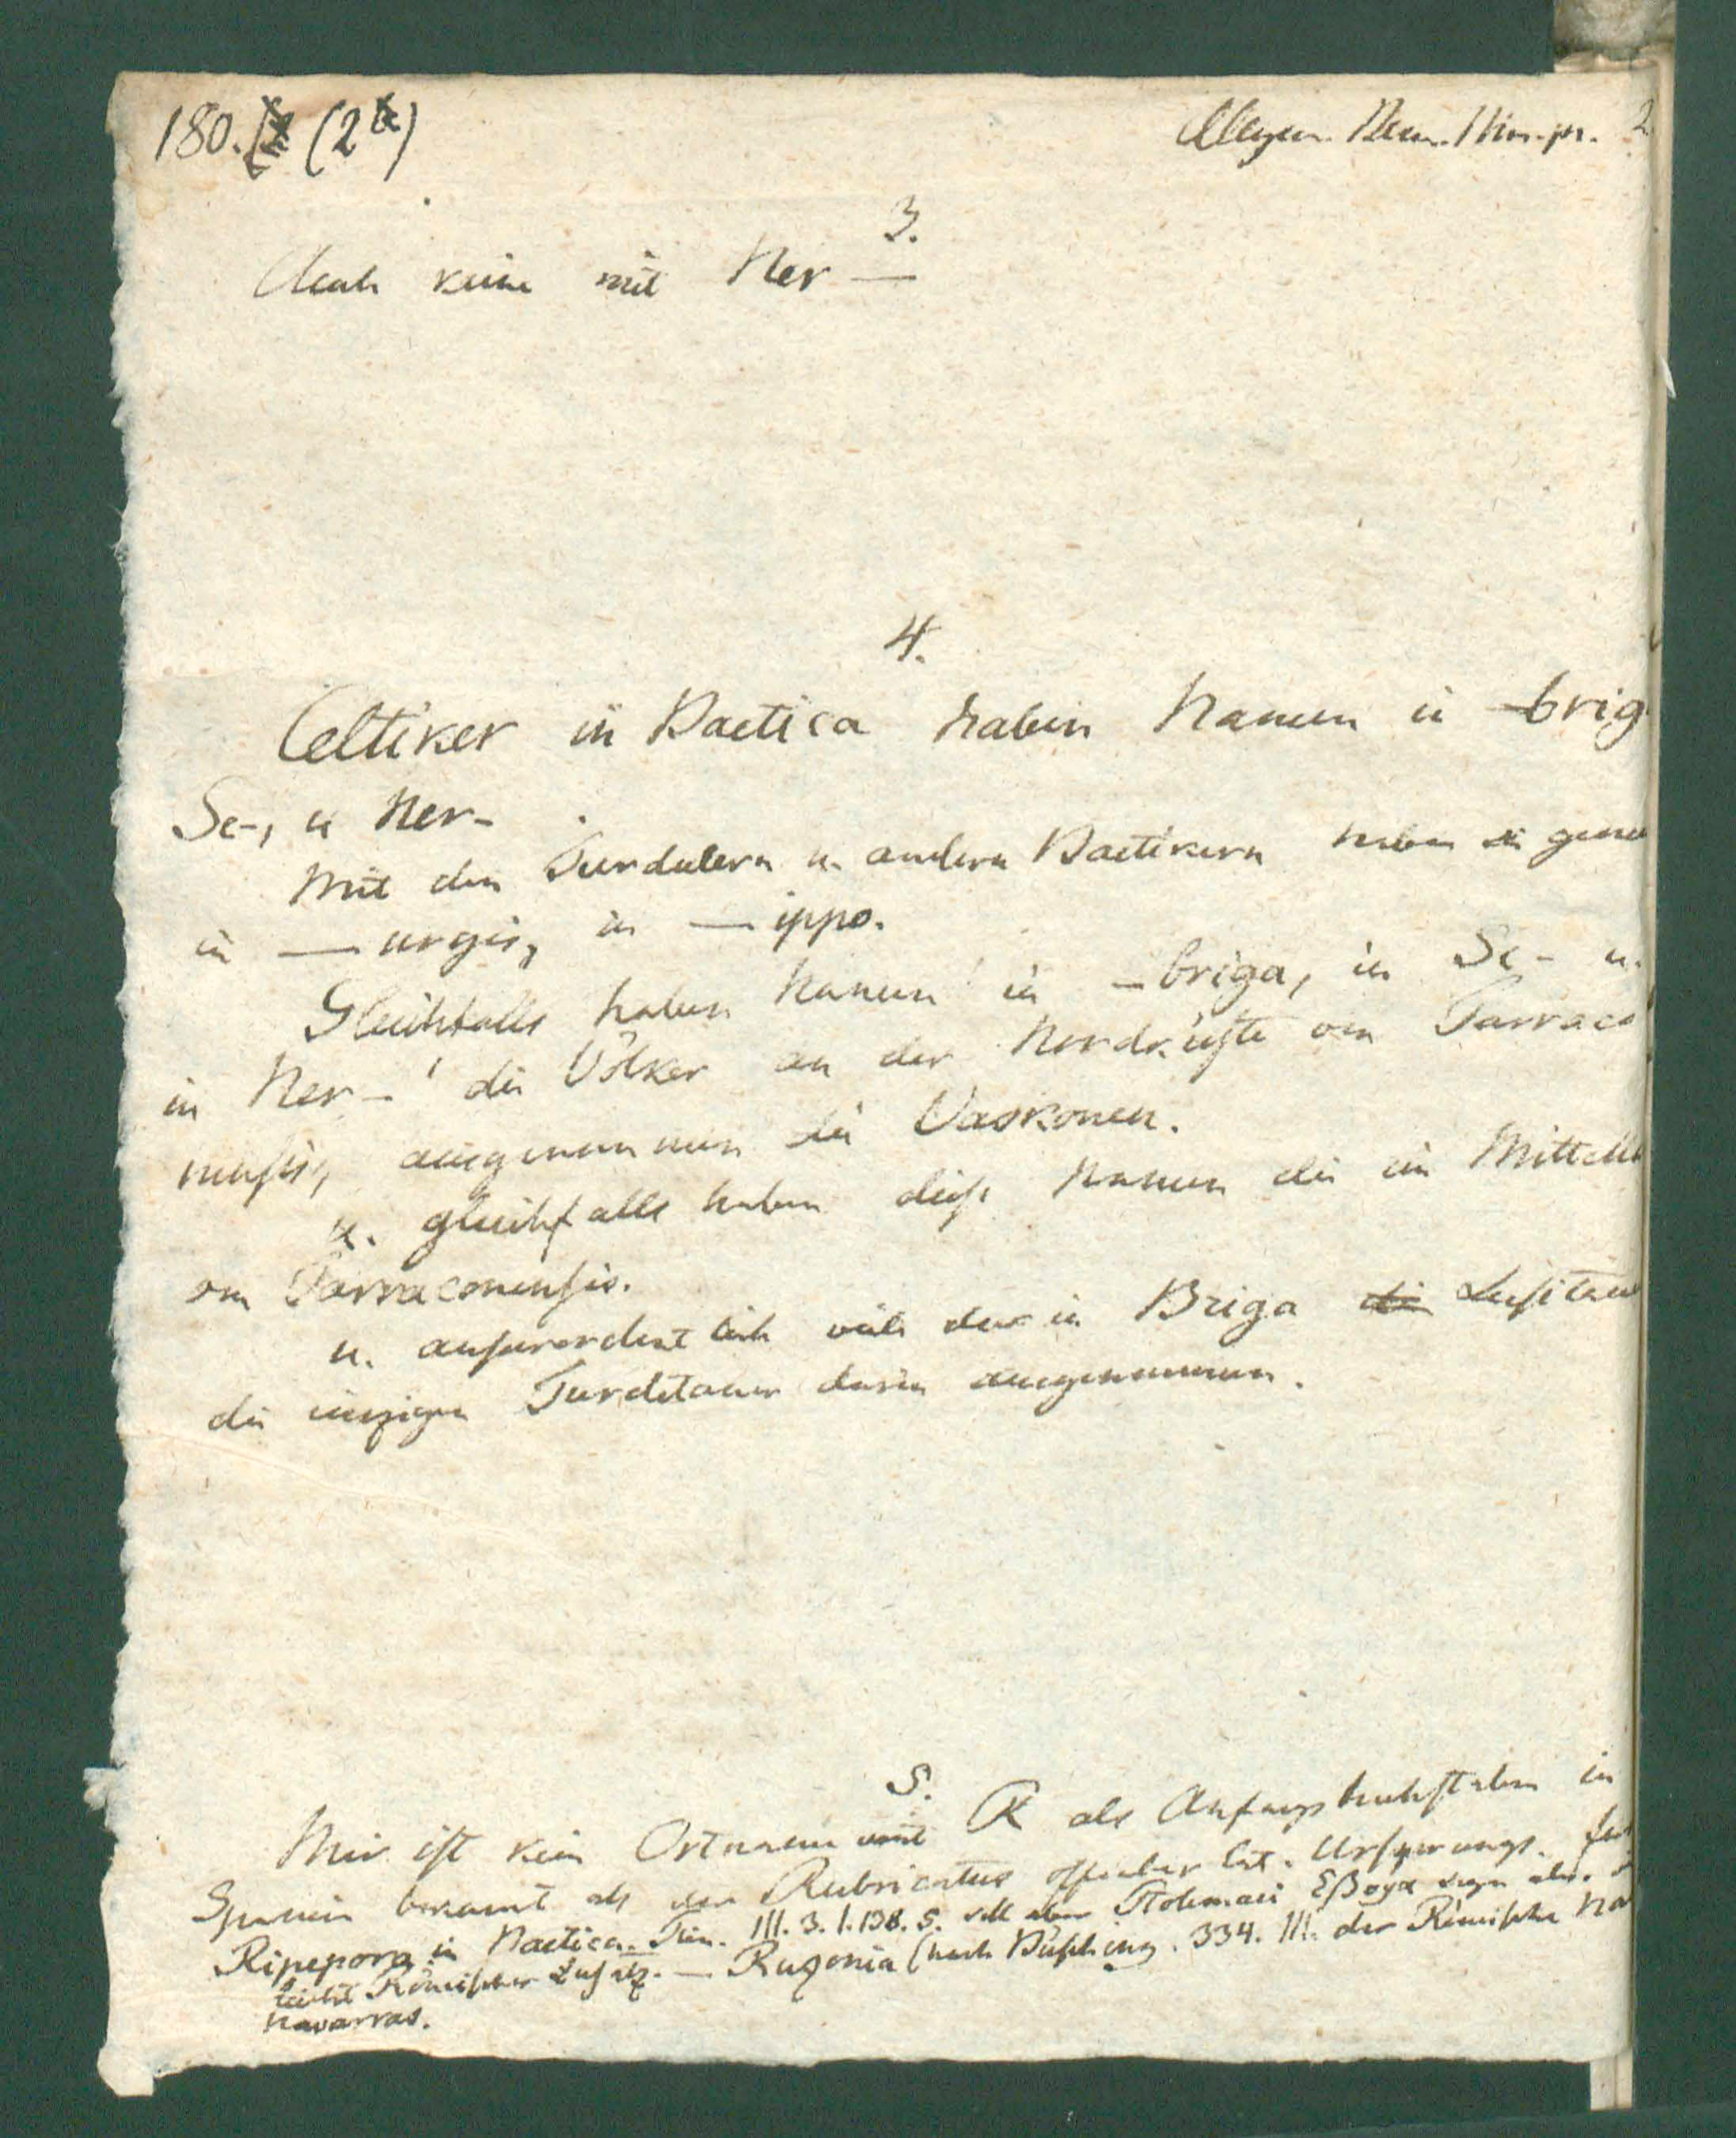 180. (2a)
Allgem. Bem. Nom. pr. 2
3.
Auch keine mit Ner —
4.
Celtiker in Baetica haben Namen in —brig
Se-, u Ner-
Mit den Turdulern u. andern Baetikern haben sie geme
in — urgis, in — ippo.
Gleichfalls haben Namen in —briga, in Se- u.
in Ner- die Völker an der Nordküste von Tarraco
nensis, ausgenommen die Vaskonen.
u. gleichfalls haben diese Namen die im Mittell
von Tarraconensis.
u. ausserordentlich viele der in Briga die Lusitan
die einzigen Turdetaner darin ausgenommen.
5.
Mir ist kein Ortname mit R als Anfangsbuchstaben in
Spanien bekannt als der Rubricatus offenbar lat. Ursprungs.
Ripepora in Baetica. Plin. III. 3. 1. 138. 5. soll aber Ptolemaei Εβορα seyn
leicht Römischer Zusatz. — Ruzonia (nach Büsching. 334. III. der Römische Na
Navarras.